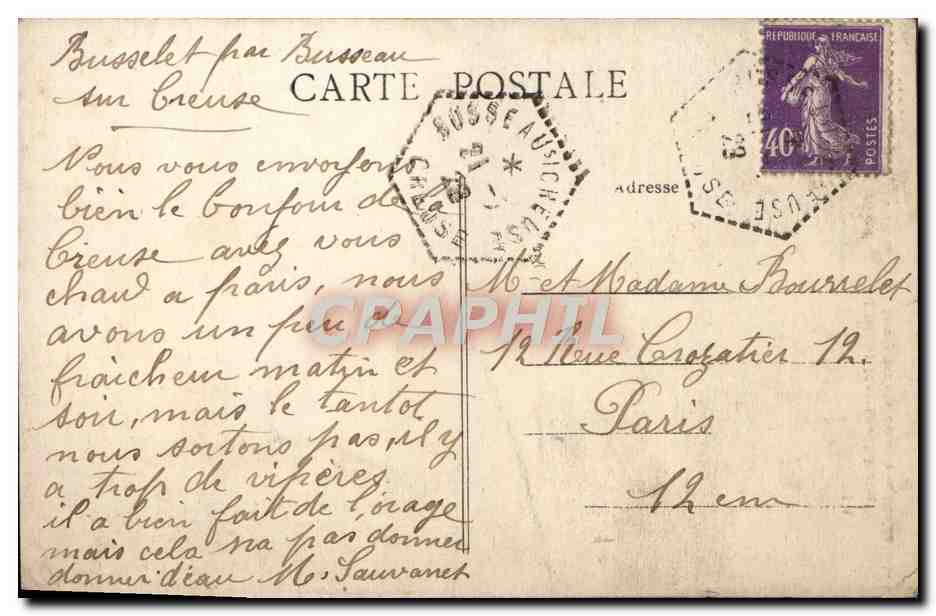 Busselet par Busseau
sur Creuse
CARTE POSTALE
Nous vous envoyons
bien le bonjour de
Creuse avez vous
chaud a paris, nous
avons un peu de
fraicheur matin et
soir, mais le tantot
nous sortons pas, il y
a trop de vipères
il a bien fait de l'orage
mais cela na pas donner
donner d'eau M. Sauvanet
BUSSEAU S/CREUSE
CREUSE
REPUBLIQUE FRANÇAISE
40c
POSTES
Adresse
M. et Madame Bourrelet
12 Rue Crozatier 12.
Paris
12 em
CPAPHIL